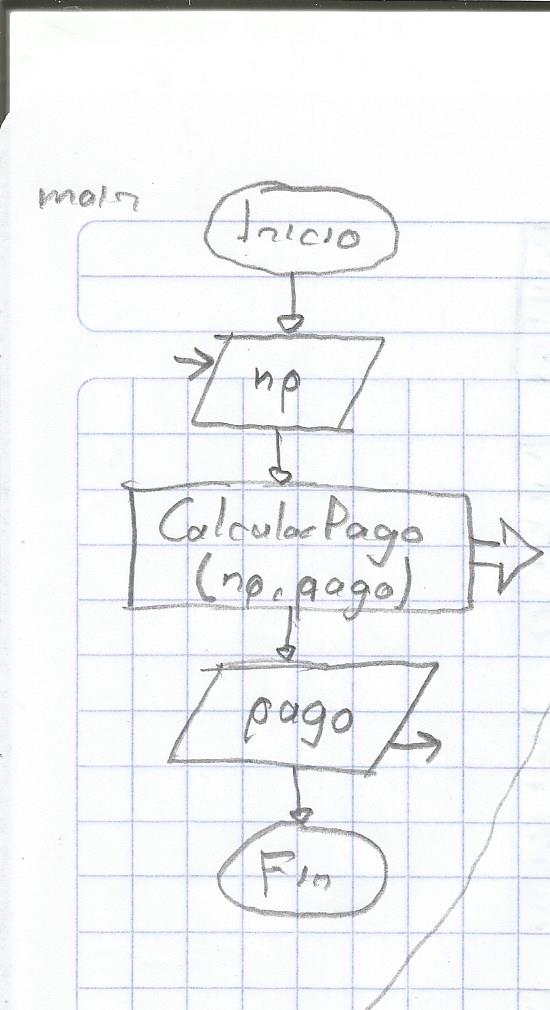 main
Inicio
np
CalcularPago
(np, pago)
pago
Fin